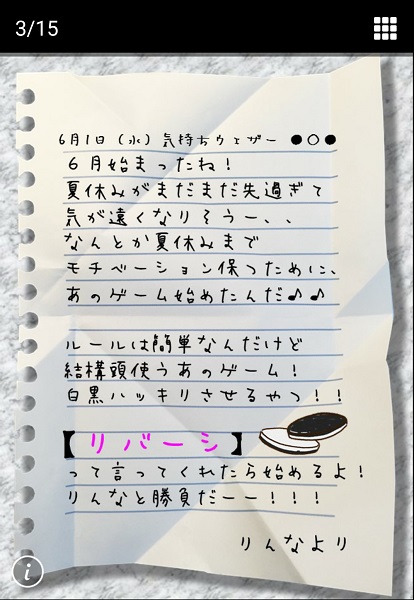 3/15
6月1日（水）気持ちウェザー ●○●
6月始まったね！
夏休みがまだまだ先過ぎて
気が遠くなりそうー、、
なんとか夏休みまで
モチベーション保つために、
あのゲーム始めたんだ♪♪
ルールは簡単なんだけど
結構頭使うあのゲーム！
白黒ハッキリさせるやつ！！
【リバーシ】
って言ってくれたら始めるよ！
りんなと勝負だーー！！！
りんなより
i